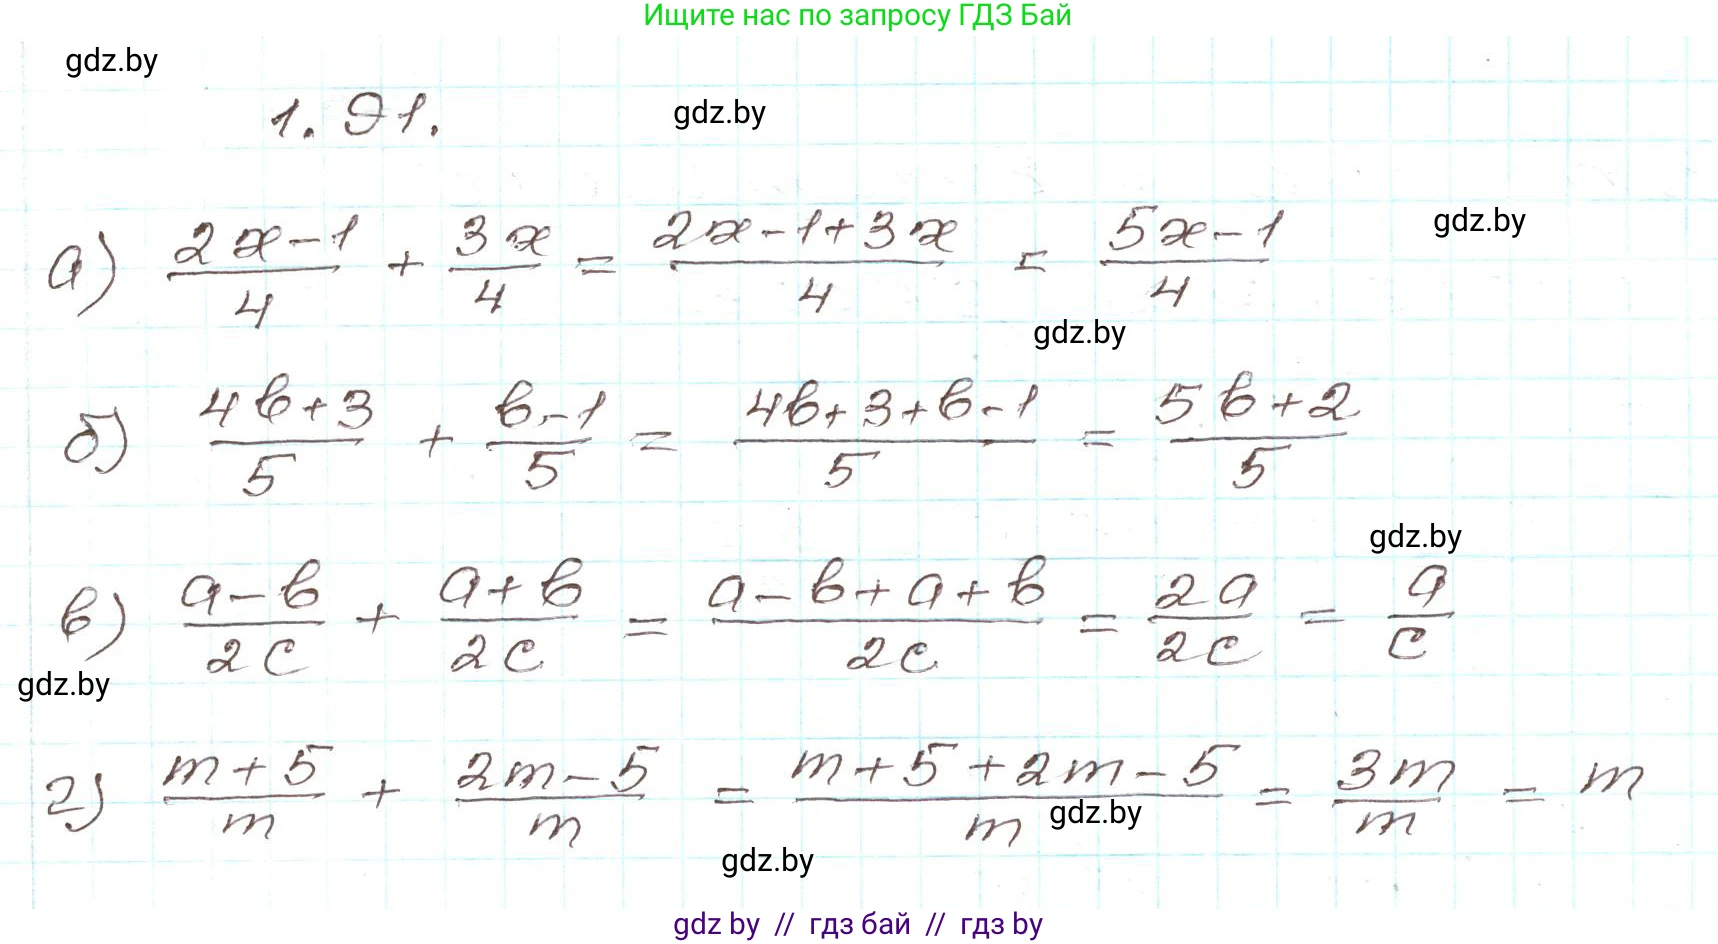 Ищите нас по запросу ГДЗ Бай
gdz.by
1.91.
gdz.by
а) (2x-1)/4 + 3x/4 = (2x-1+3x)/4 = (5x-1)/4
gdz.by
gdz.by
б) (4b+3)/5 + (b-1)/5 = (4b+3+b-1)/5 = (5b+2)/5
gdz.by
в) (a-b)/2c + (a+b)/2c = (a-b+a+b)/2c = 2a/2c = a/c
gdz.by
г) (m+5)/m + (2m-5)/m = (m+5+2m-5)/m = 3m/m = m
gdz.by
gdz.by
gdz by // гдз бай // гдз by